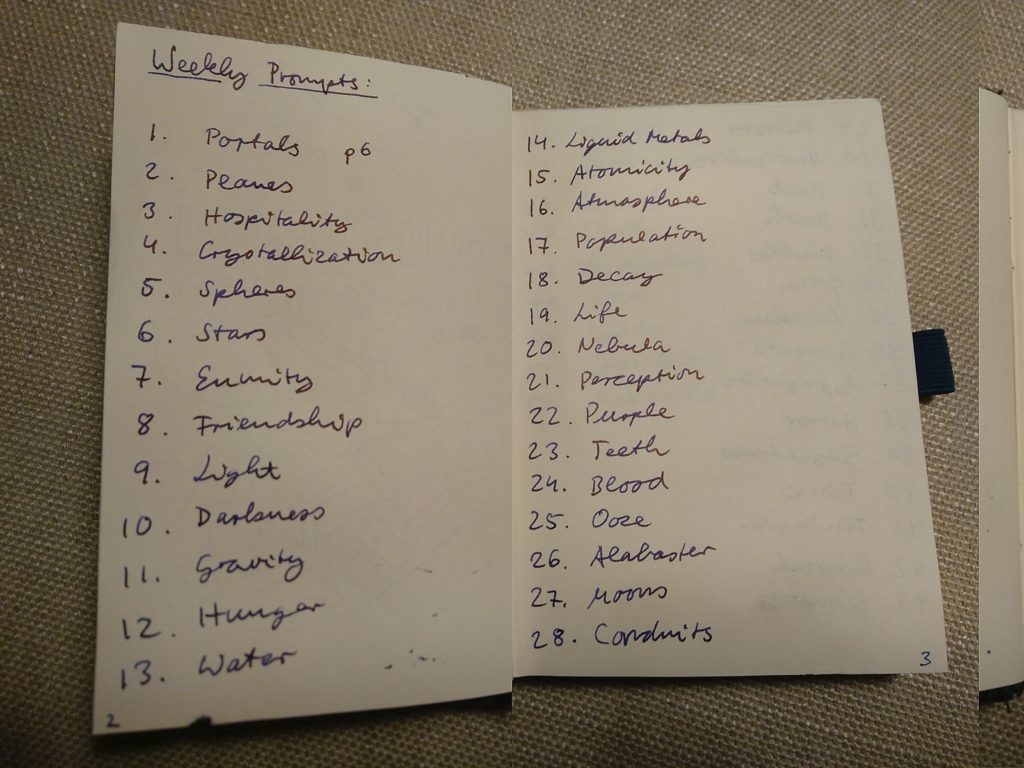 Weekly Prompts:
1. Portals p6
2. Planes
3. Hospitality
4. Crystallization
5. Spheres
6. Stars
7. Enmity
8. Friendship
9. Light
10. Darkness
11. Gravity
12. Hunger
13. Water
2
14. Liquid Metals
15. Atomicity
16. Atmosphere
17. Population
18. Decay
19. Life
20. Nebula
21. Perception
22. Purple
23. Teeth
24. Blood
25. Ooze
26. Alabaster
27. Moons
28. Conduits
3